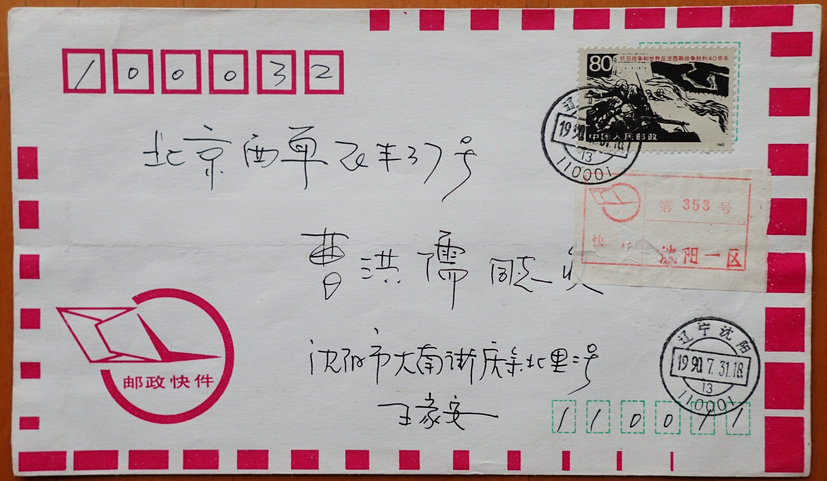 100032
80
抗日战争和世界反法西斯战争胜利40周年
中国人民邮政
辽宁
1990.7.31.18
13
110001
北京西单 37号
第 353 号
快
沈阳一区
曹洪儒 同志 收
邮政快件
沈阳市大南街庆余北里2号
王家安
辽宁沈阳
1990.7.31.18
13
110001
110011